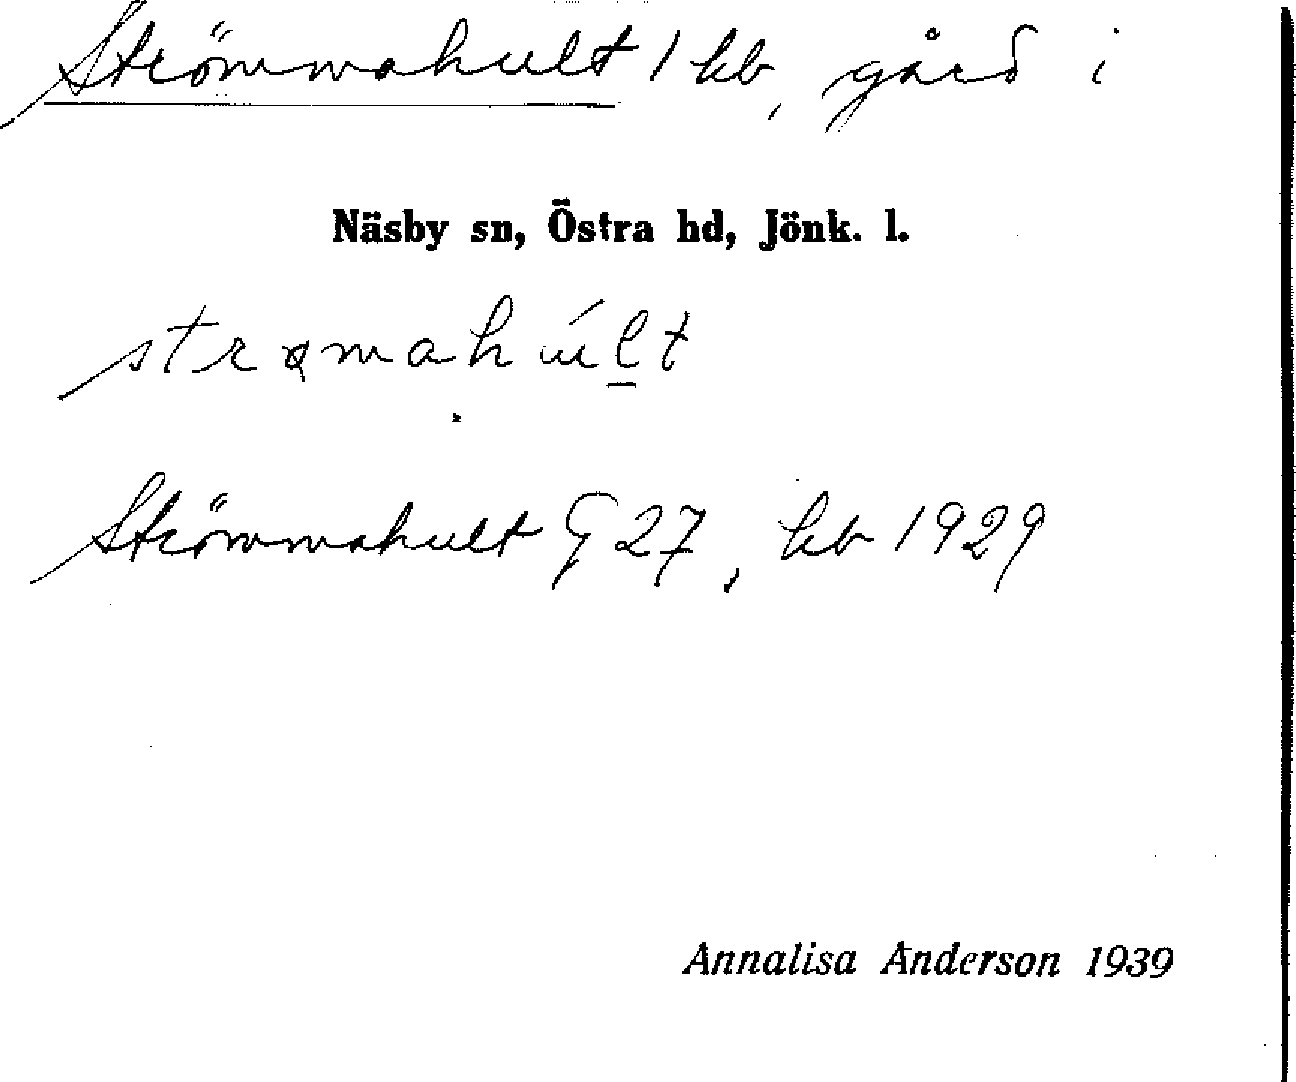 Strömmahult 1 kb, gård i
Näsby sn, Östra hd, Jönk. l.
strømahúl̲t
Strömmahult G 27, kb 1929
Annalisa Anderson 1939